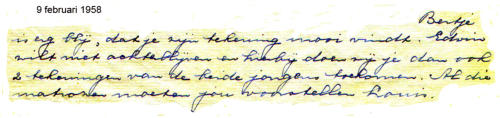 9 februari 1958
Bertje
is erg blij, dat je zijn tekening mooi vindt. Edwin
wilt niet achterblijven en hierbij doen wij je dan ook
2 tekeningen van de beide jongens toekomen. Al die
matrozen moeten jou voorstellen Louis.